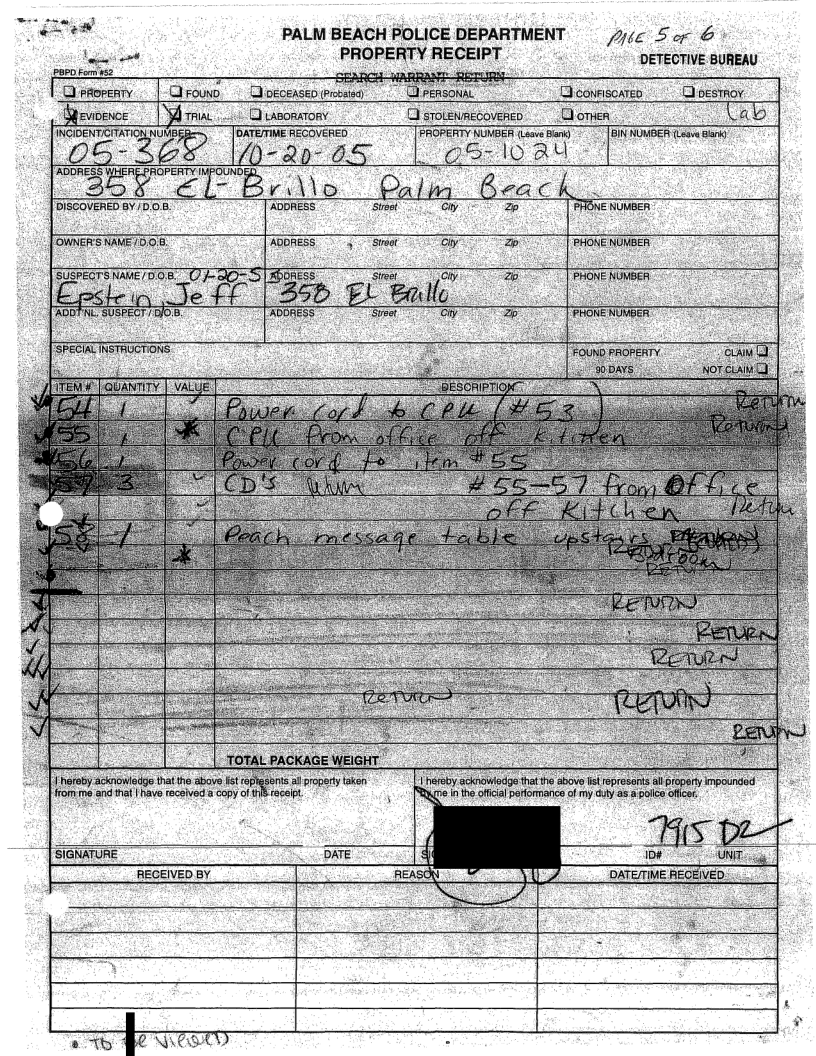 PALM BEACH POLICE DEPARTMENT
PROPERTY RECEIPT
PAGE 5 OF 6
DETECTIVE BUREAU
PBPD Form #52
SEARCH WARRANT RETURN
PROPERTY FOUND DECEASED (Probated) PERSONAL CONFISCATED DESTROY
EVIDENCE TRIAL LABORATORY STOLEN/RECOVERED OTHER Lab
INCIDENT/CITATION NUMBER DATE/TIME RECOVERED PROPERTY NUMBER (Leave Blank) BIN NUMBER (Leave Blank)
05-368 10-20-05 05-1024
ADDRESS WHERE PROPERTY IMPOUNDED
358 El-Brillo Palm Beach
DISCOVERED BY / D.O.B. ADDRESS Street City Zip PHONE NUMBER
OWNER'S NAME / D.O.B. ADDRESS Street City Zip PHONE NUMBER
SUSPECT'S NAME / D.O.B. 01-20-5 ADDRESS Street City Zip PHONE NUMBER
Epstein, Jeff 358 El Brillo
ADDT'NL. SUSPECT / D.O.B. ADDRESS Street City Zip PHONE NUMBER
SPECIAL INSTRUCTIONS FOUND PROPERTY CLAIM
90 DAYS NOT CLAIM
ITEM # QUANTITY VALUE DESCRIPTION
54 1 Power cord to CPU (#53) Return
55 1 CPU from office off kitchen Return
56 1 Power cord to item #55
57 3 CD's return #55-57 from Office
off Kitchen Return
58 1 Peach message table upstairs
RETURN
RETURN
RETURN
RETURN
RETURN
RETURN RETURN
RETURN
TOTAL PACKAGE WEIGHT
I hereby acknowledge that the above list represents all property taken
from me and that I have received a copy of this receipt.
I hereby acknowledge that the above list represents all property impounded
by me in the official performance of my duty as a police officer.
7915 D2
SIGNATURE DATE ID# UNIT
RECEIVED BY REASON DATE/TIME RECEIVED
TO BE VIEWED